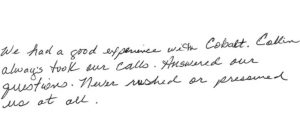 We had a good experience with Cobalt. Collin
always took our calls. Answered our
questions. Never rushed or pressured
us at all.